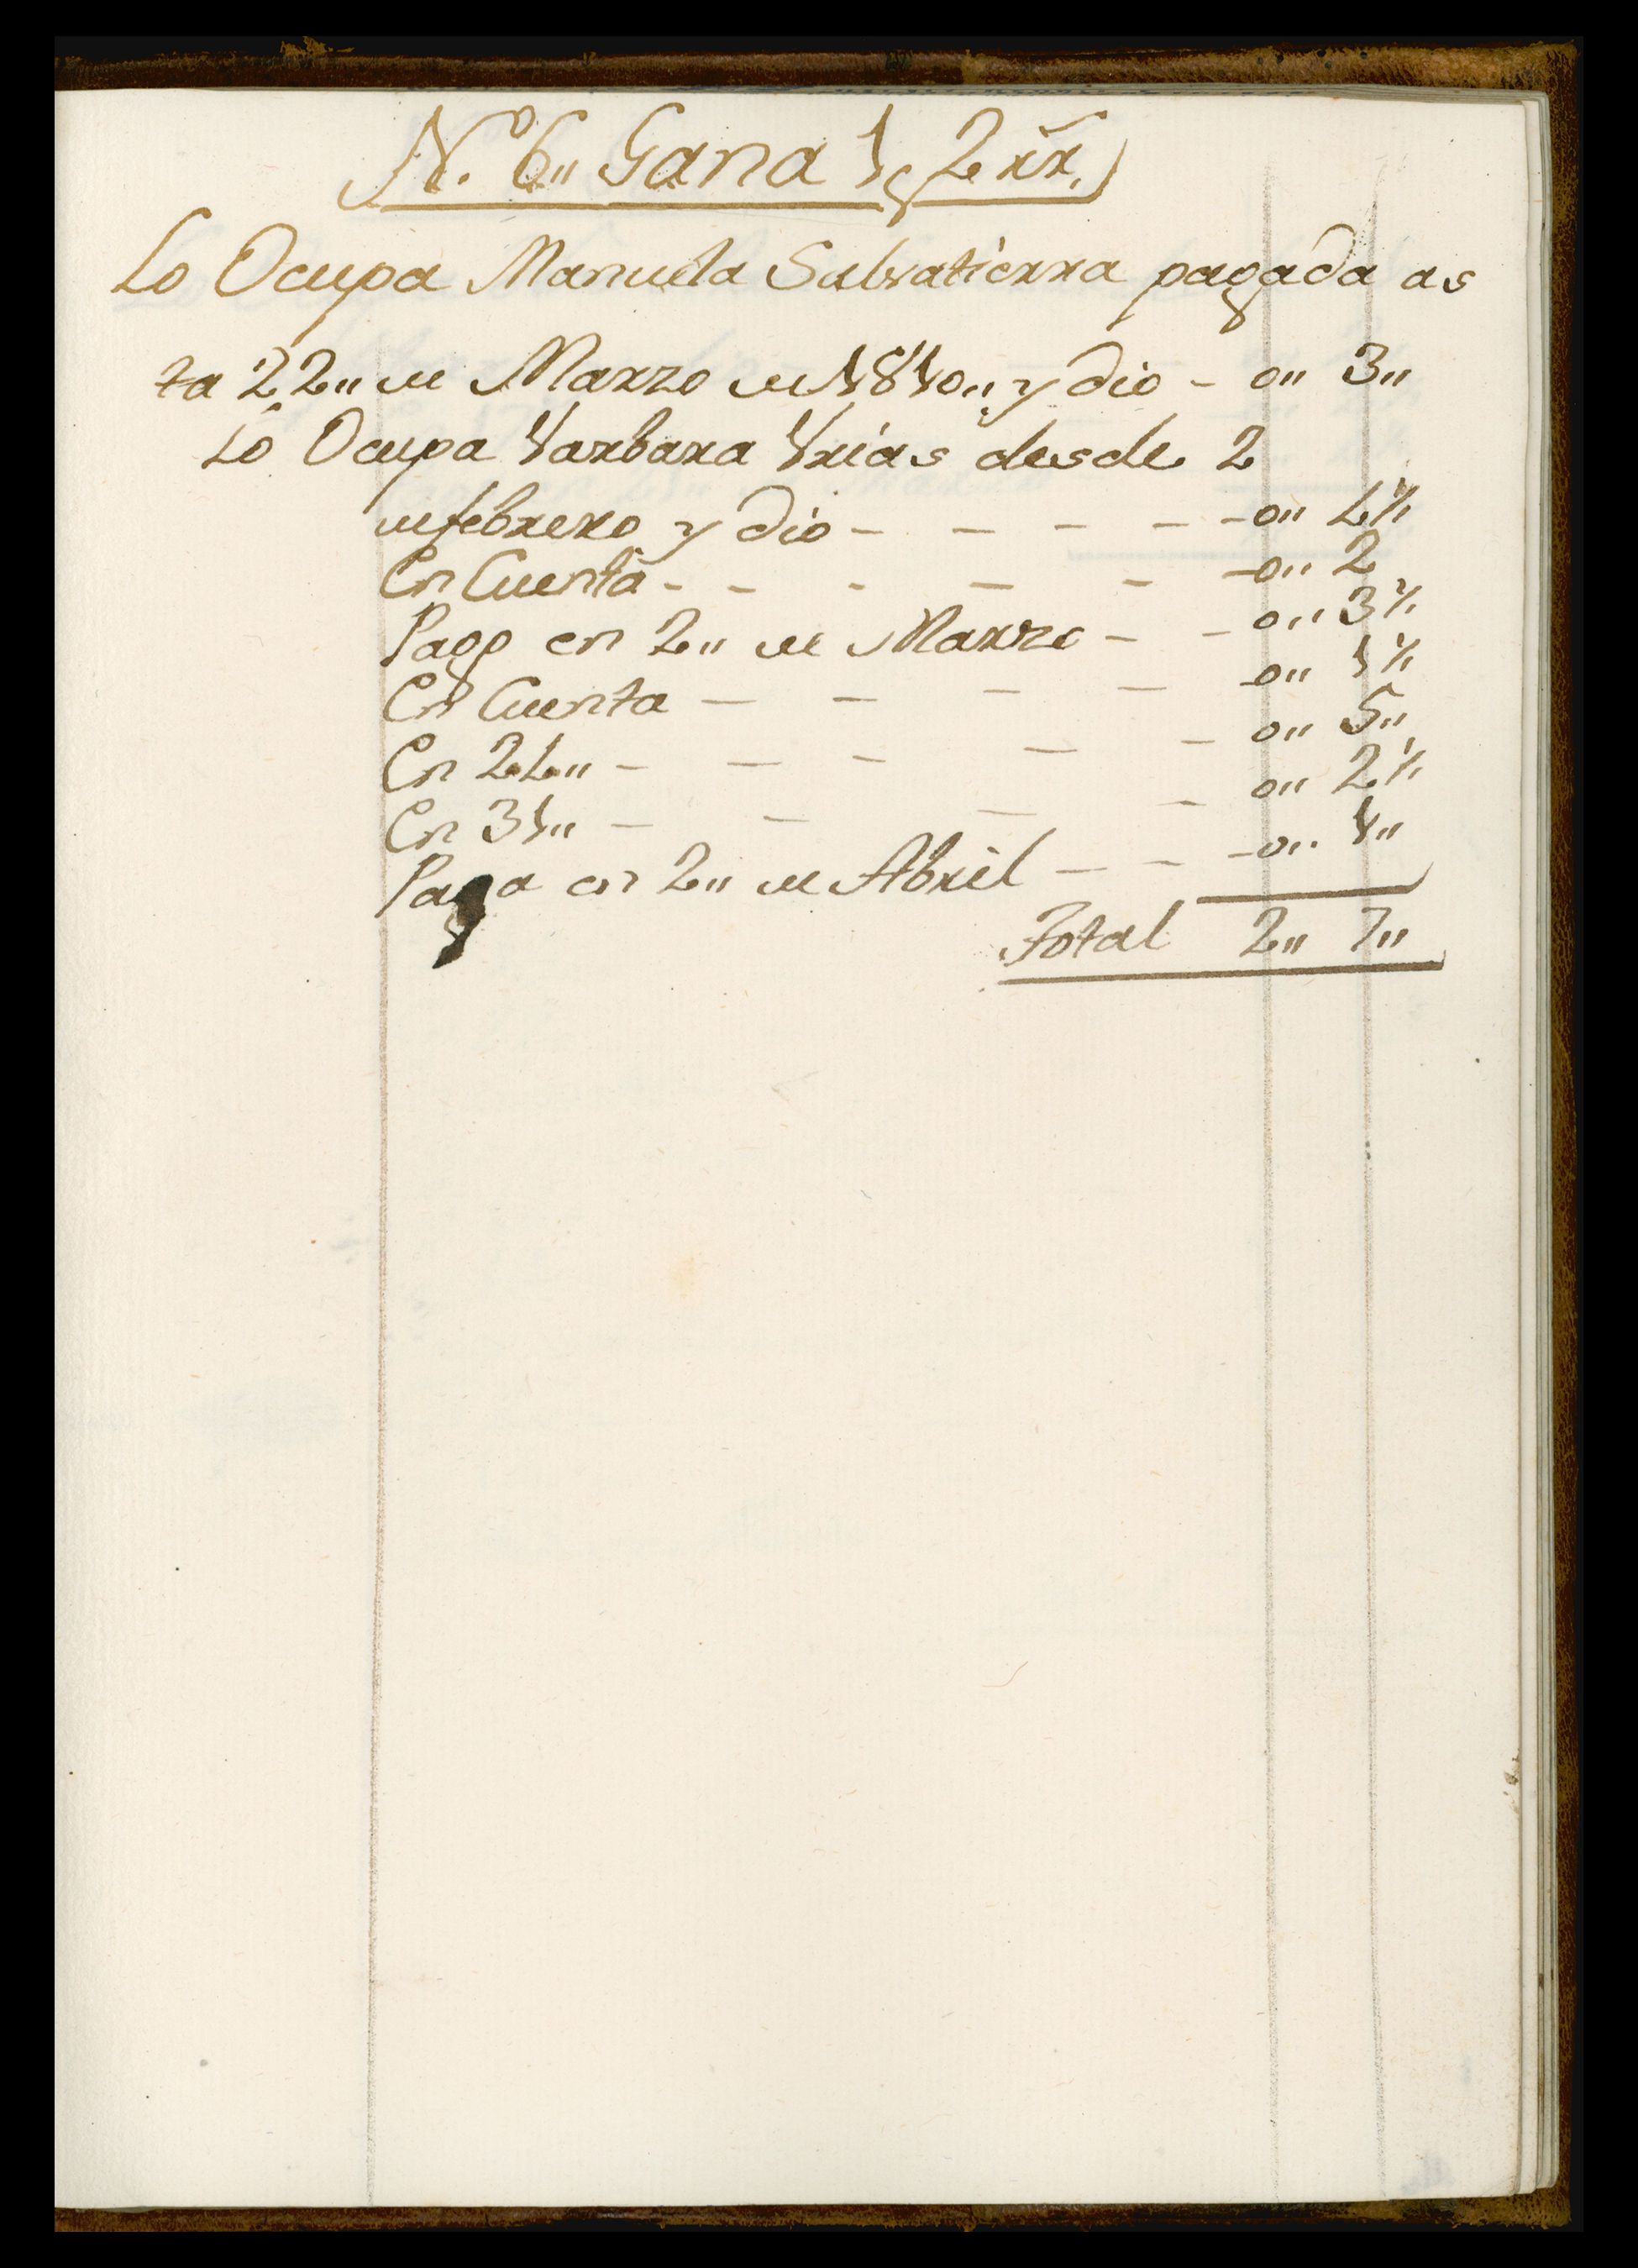 N.º 6,, Gana 1p 2 rr.
Lo Ocupa Manuela Salvatierra pagada as
ta 22,, de Marzo de 1810,, y dio - 0,, 3,,
Lo Ocupa Varbara Vrias desde 2
de febrero y dio - - - - - 0,, 4½
En Cuenta - - - - - - 0,, 2
Pago en 2,, de Marzo - - 0,, 3½
En Cuenta - - - - 0,, 1½
En 24,, - - - - - 0,, 5,,
En 31,, - - - - 0,, 2½
Paga en 2,, de Abril - - - 0,, 1,,
Total 2,, 7,,